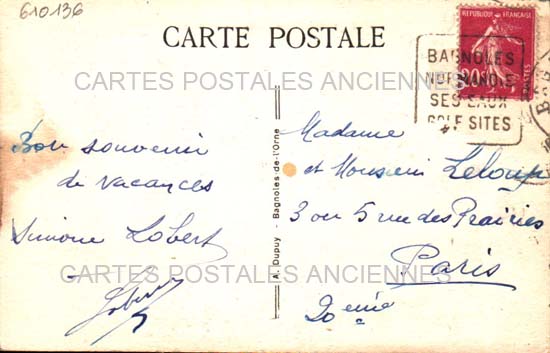 610136
CARTE POSTALE
REPUBLIQUE FRANÇAISE
POSTES
BAGNOLES
NORMANDIE
SES EAUX
GOLF SITES
CARTES POSTALES ANCIENNES
Bon souvenir
de vacances
Simone Lobert
A. Dupuy - Bagnoles-de-l'Orne
Madame
et Monsieur Leloup
3 ou 5 rue des Prairies
Paris
20eme
CARTES POSTALES ANCIENNES